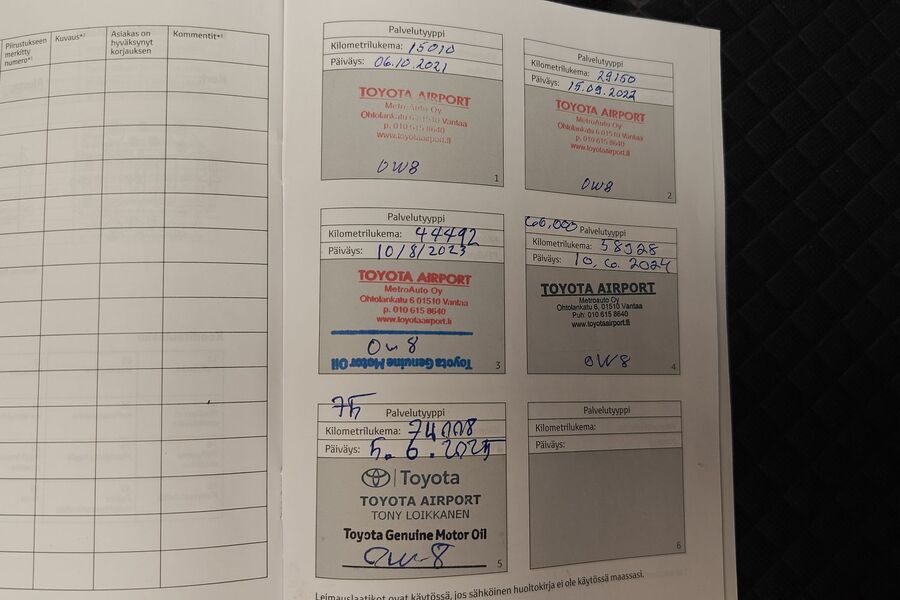 Piirustukseen
merkitty
numero*¹
Kuvaus*²
Asiakas on
hyväksynyt
korjauksen
Kommentit*³
Palvelutyyppi
Kilometrilukema: 15010
Päiväys: 06.10.2021
TOYOTA AIRPORT
MetroAuto Oy
Ohtolankatu 6 01510 Vantaa
p. 010 615 8640
www.toyotaairport.fi
OW8
1
Palvelutyyppi
Kilometrilukema: 29150
Päiväys: 15.09.2022
TOYOTA AIRPORT
MetroAuto Oy
Ohtolankatu 6 01510 Vantaa
p. 010 615 8640
www.toyotaairport.fi
OW8
2
Palvelutyyppi
Kilometrilukema: 44492
Päiväys: 10/8/2023
TOYOTA AIRPORT
MetroAuto Oy
Ohtolankatu 6 01510 Vantaa
p. 010 615 8640
www.toyotaairport.fi
OW8
Toyota Genuine Motor Oil
3
60,000 Palvelutyyppi
Kilometrilukema: 58928
Päiväys: 10.6.2024
TOYOTA AIRPORT
Metroauto Oy
Ohtolankatu 6, 01510 Vantaa
Puh: 010 615 8640
www.toyotaairport.fi
OW8
4
Palvelutyyppi
Kilometrilukema:
Päiväys: 5.6.2025
Toyota
TOYOTA AIRPORT
TONY LOIKKANEN
Toyota Genuine Motor Oil
OW-8
5
Palvelutyyppi
Kilometrilukema:
Päiväys:
6
Leimauslaatikot ovat käytössä, jos sähköinen huoltokirja ei ole käytössä maassasi.